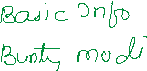 Basic Info
Bunty modi